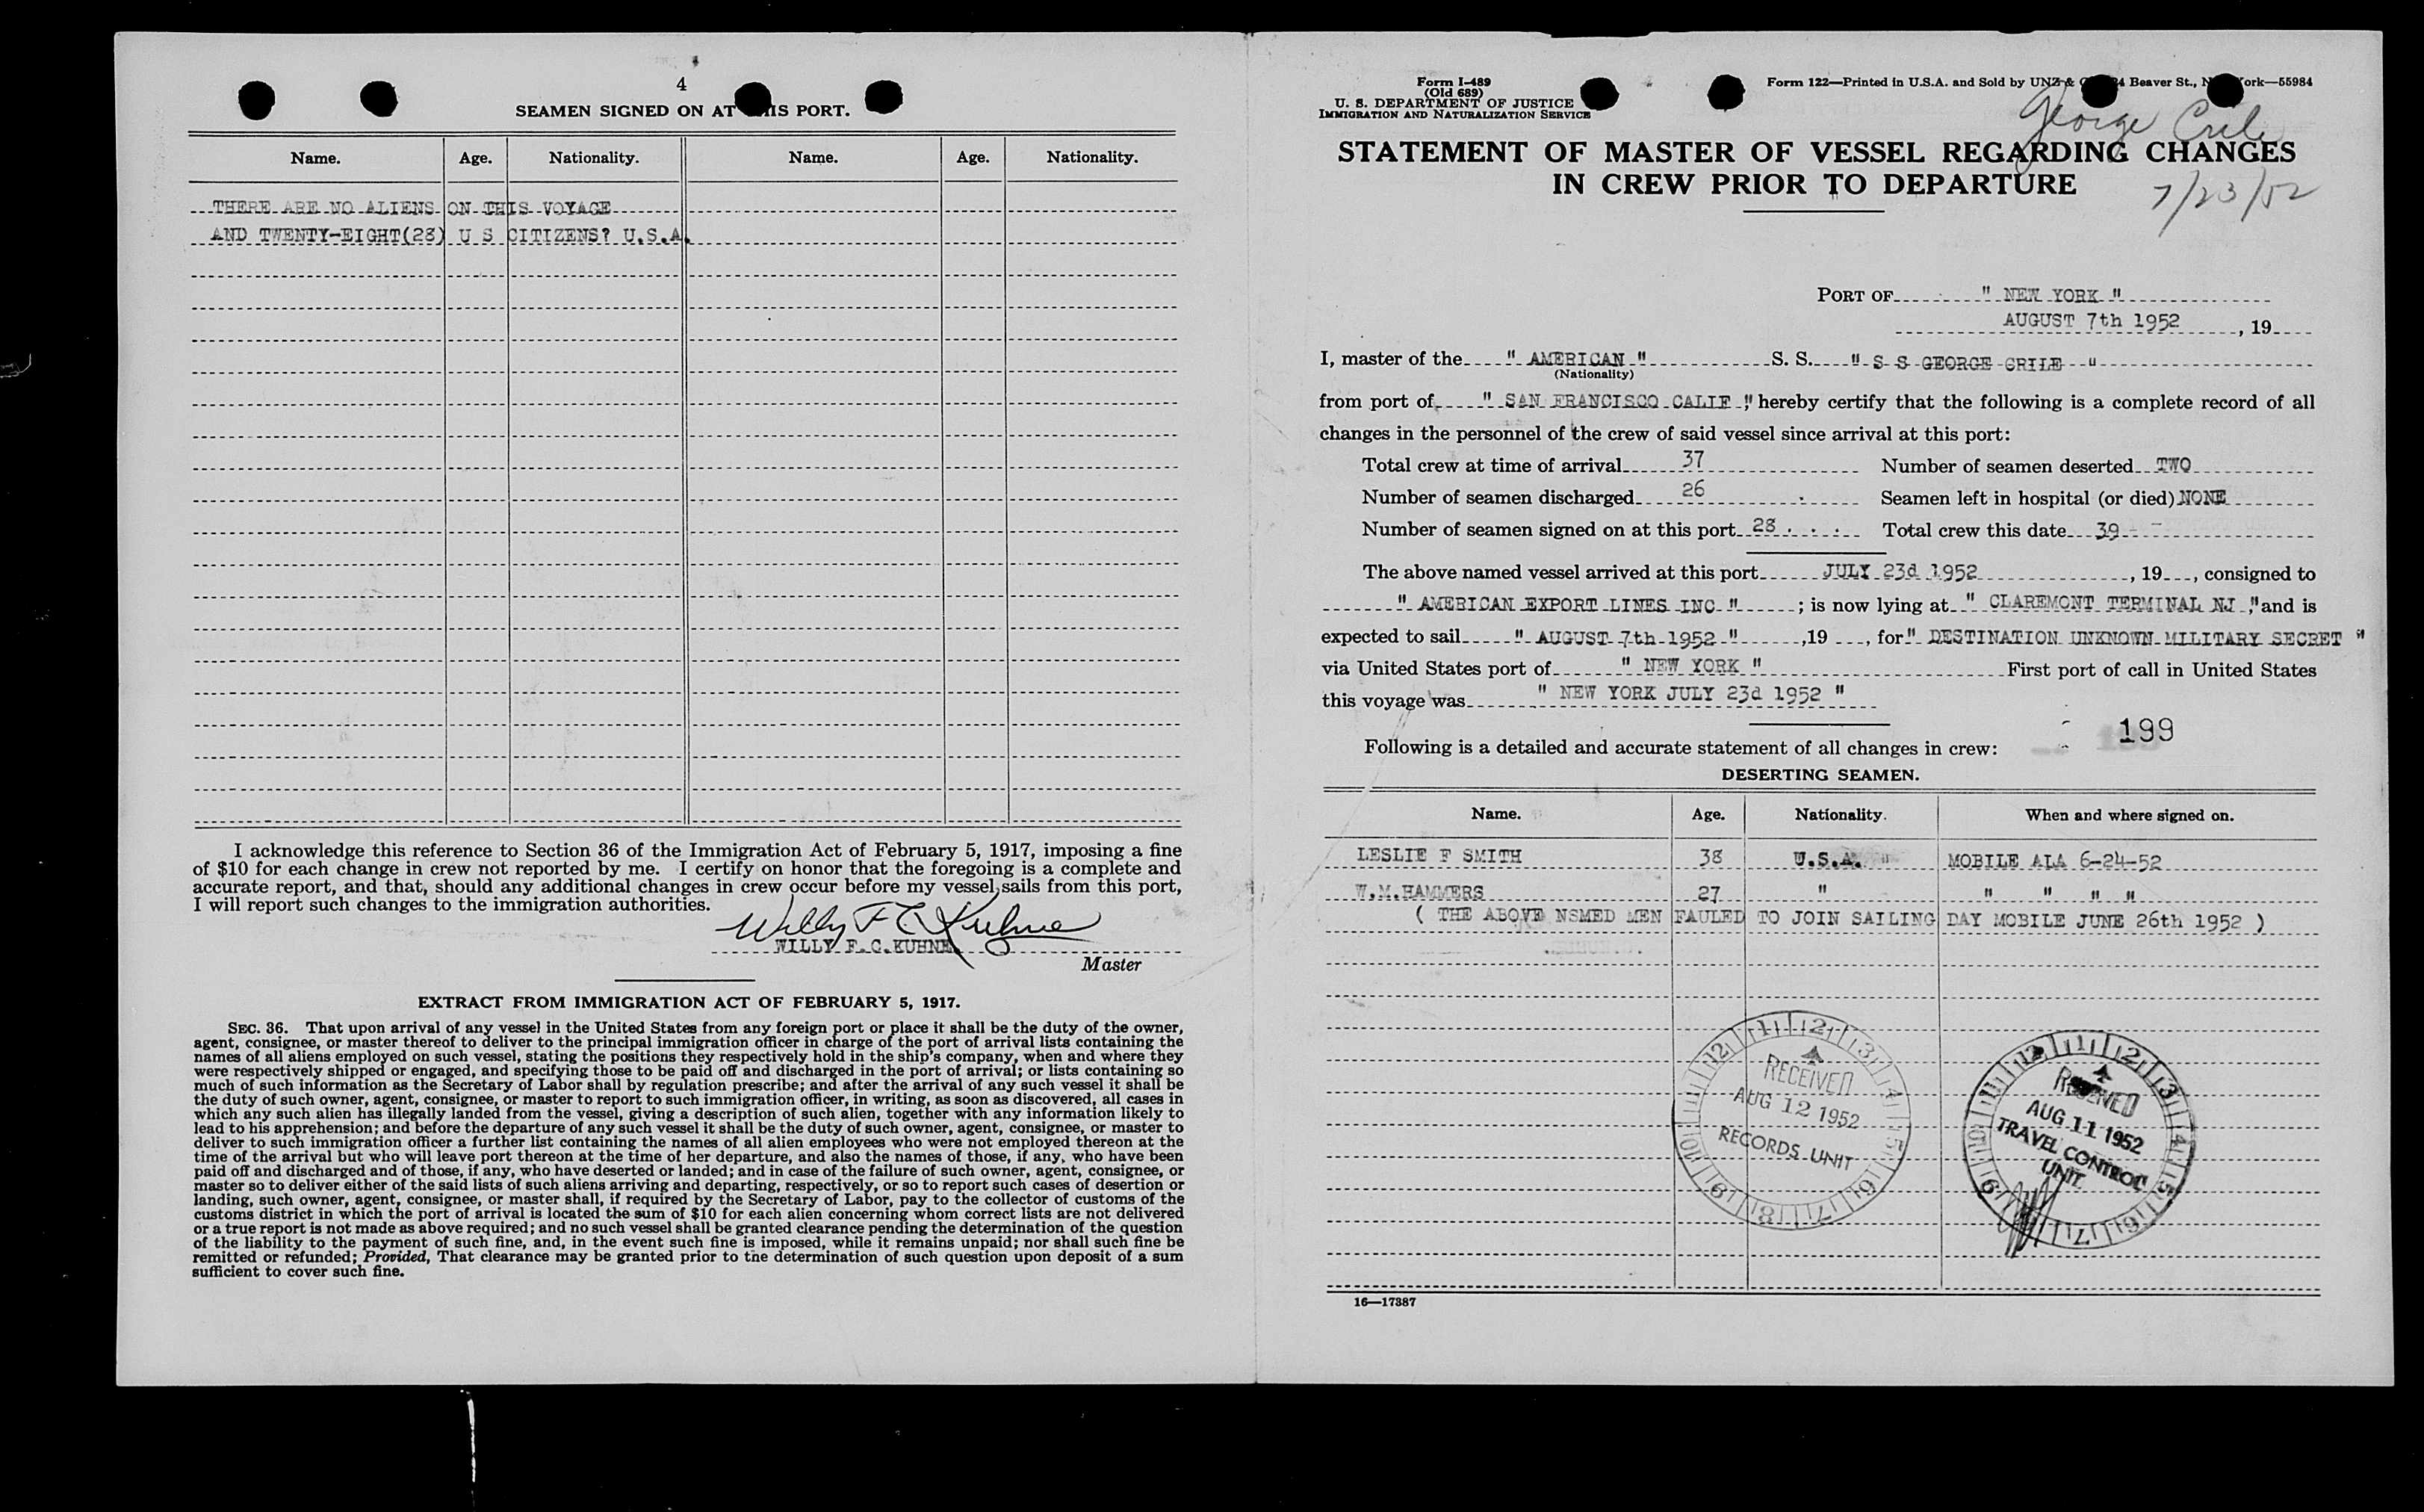 4
SEAMEN SIGNED ON AT THIS PORT.
Name. Age. Nationality. Name. Age. Nationality.
THERE ARE NO ALIENS ON THIS VOYAGE
AND TWENTY-EIGHT(28) U S CITIZENS? U.S.A.
I acknowledge this reference to Section 36 of the Immigration Act of February 5, 1917, imposing a fine
of $10 for each change in crew not reported by me. I certify on honor that the foregoing is a complete and
accurate report, and that, should any additional changes in crew occur before my vessel sails from this port,
I will report such changes to the immigration authorities.
Willy F C Kuhne
WILLY F.C.KUHNE
Master
EXTRACT FROM IMMIGRATION ACT OF FEBRUARY 5, 1917.
SEC. 36. That upon arrival of any vessel in the United States from any foreign port or place it shall be the duty of the owner,
agent, consignee, or master thereof to deliver to the principal immigration officer in charge of the port of arrival lists containing the
names of all aliens employed on such vessel, stating the positions they respectively hold in the ship's company, when and where they
were respectively shipped or engaged, and specifying those to be paid off and discharged in the port of arrival; or lists containing so
much of such information as the Secretary of Labor shall by regulation prescribe; and after the arrival of any such vessel it shall be
the duty of such owner, agent, consignee, or master to report to such immigration officer, in writing, as soon as discovered, all cases in
which any such alien has illegally landed from the vessel, giving a description of such alien, together with any information likely to
lead to his apprehension; and before the departure of any such vessel it shall be the duty of such owner, agent, consignee, or master to
deliver to such immigration officer a further list containing the names of all alien employees who were not employed thereon at the
time of the arrival but who will leave port thereon at the time of her departure, and also the names of those, if any, who have been
paid off and discharged and of those, if any, who have deserted or landed; and in case of the failure of such owner, agent, consignee, or
master so to deliver either of the said lists of such aliens arriving and departing, respectively, or so to report such cases of desertion or
landing, such owner, agent, consignee, or master shall, if required by the Secretary of Labor, pay to the collector of customs of the
customs district in which the port of arrival is located the sum of $10 for each alien concerning whom correct lists are not delivered
or a true report is not made as above required; and no such vessel shall be granted clearance pending the determination of the question
of the liability to the payment of such fine, and, in the event such fine is imposed, while it remains unpaid; nor shall such fine be
remitted or refunded; Provided, That clearance may be granted prior to the determination of such question upon deposit of a sum
sufficient to cover such fine.
Form I-489
(Old 689)
U. S. DEPARTMENT OF JUSTICE
IMMIGRATION AND NATURALIZATION SERVICE
Form 122—Printed in U.S.A. and Sold by UNZ & Beaver St., ork—55984
George Crile
STATEMENT OF MASTER OF VESSEL REGARDING CHANGES
IN CREW PRIOR TO DEPARTURE
7/23/52
PORT OF " NEW YORK "
AUGUST 7th 1952 , 19
I, master of the " AMERICAN " S. S. " S S GEORGE CRILE "
(Nationality)
from port of " SAN FRANCISCO CALIF ," hereby certify that the following is a complete record of all
changes in the personnel of the crew of said vessel since arrival at this port:
Total crew at time of arrival 37 Number of seamen deserted TWO
Number of seamen discharged 26 Seamen left in hospital (or died) NONE
Number of seamen signed on at this port 28 . . . Total crew this date 39
The above named vessel arrived at this port JULY 23d 1952 , 19 , consigned to
" AMERICAN EXPORT LINES INC " ; is now lying at " CLAREMONT TERMINAL NJ ," and is
expected to sail " AUGUST 7th 1952 " ,19 , for " DESTINATION UNKNOWN MILITARY SECRET "
via United States port of " NEW YORK " First port of call in United States
this voyage was " NEW YORK JULY 23d 1952 "
199
Following is a detailed and accurate statement of all changes in crew:
DESERTING SEAMEN.
Name. Age. Nationality. When and where signed on.
LESLIE F SMITH 38 U.S.A. " MOBILE ALA 6-24-52
W.M.HAMMERS 27 " " " " "
( THE ABOVE NSMED MEN FAULED TO JOIN SAILING DAY MOBILE JUNE 26th 1952 )
RECEIVED
AUG 12 1952
RECORDS UNIT
RECEIVED
AUG 11 1952
TRAVEL CONTROL
UNIT
16—17387